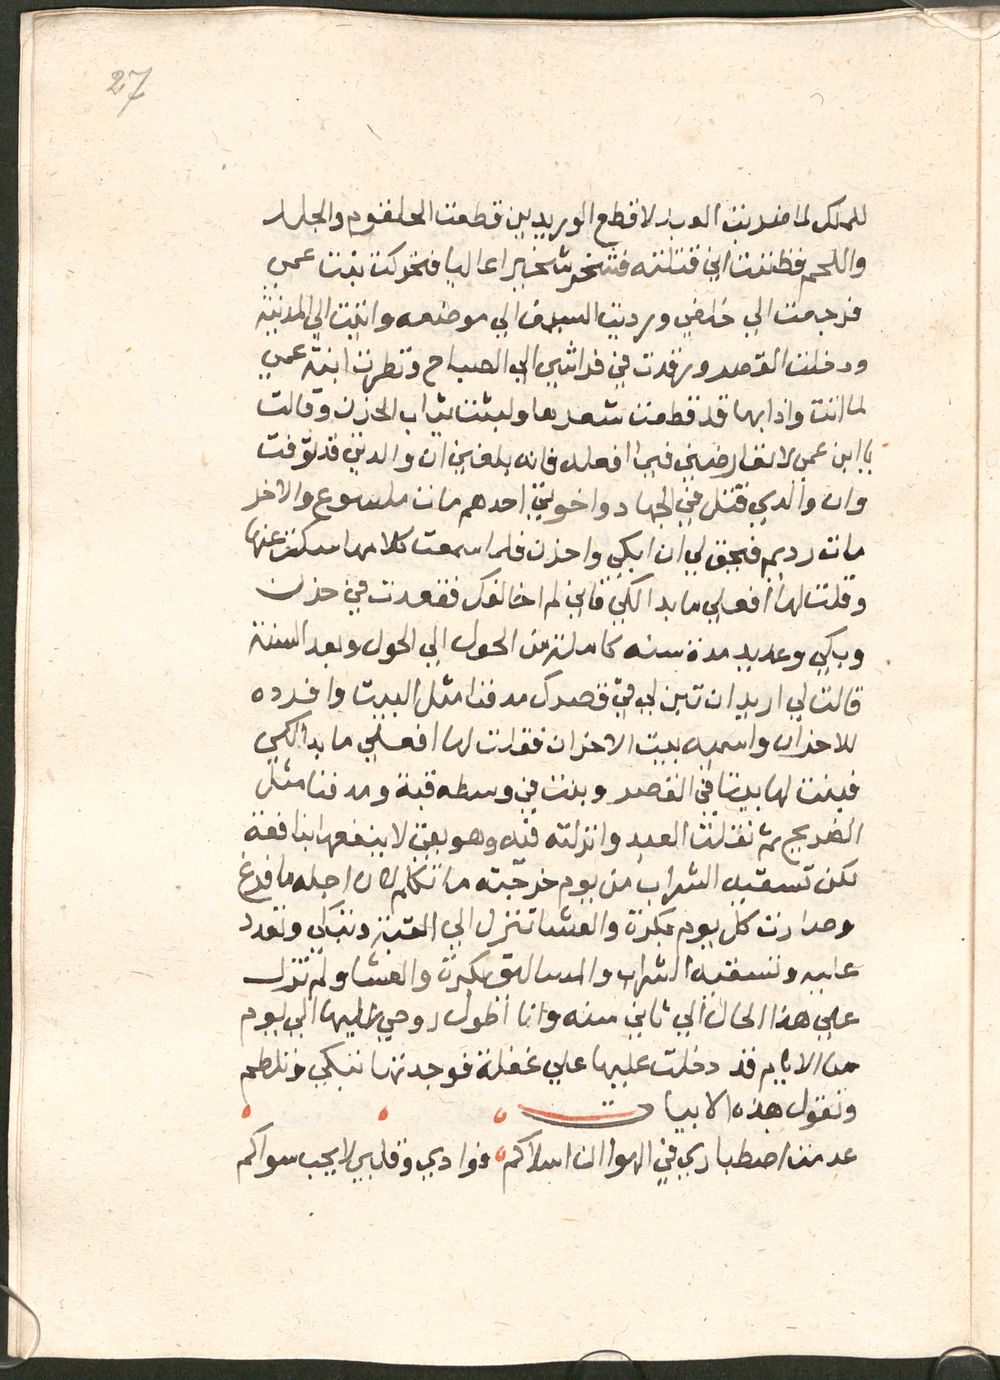 27
للملك لما ضربت العبد لاقطع الوريدين قطعت الحلقوم والجلد
واللحم فظننت اني قتلته فشخر شخيرا عاليا فتحركت بنت عمي
فرجعت الي خلفي ورديت السيف الي موضعه واتيت الي المدينة
ودخلت القصر ورقدت في فراشي الي الصباح ونظرت ابنة عمي
لما اتت واذا بها قد قطعت شعرها ولبست ثياب الحزن وقالت
يا ابن عمي لا تعارضني فيما افعله فانه بلغني ان والدتي قد توفت
وان والدي قتل في الجهاد واخوتي احدهم مات ملسوع والاخر
مات رديم فيحق لي ان ابكي واحزن فلما سمعت كلامها سكت عنها
وقلت لها افعلي ما بدا لكي فاني لم اخالفك فقعدت في حزن
وبكي وعديد مدة سنه كاملة من الحول الي الحول وبعد السنة
قالت لي اريد ان تبن لي في قصرك مدفنا مثل البيت وافرده
للاحزان واسميه بيت الاحزان فقلت لها افعلي ما بدا لكي
فبنت لها بيتا في القصر وبنت في وسطه قبة ومدفنا مثل
الضريح ثم نقلت العبد وانزلته فيه وهو بقي لا ينفعها بنافعة
لكن تسقيه الشراب من يوم جرحته ما تكلم لان اجله ما فرغ
وصارت كل يوم بكرة والعشا تنزل الي القبة وتبكي وتعدد
عليه وتسقيه الشراب والمساليق بكرة والعشا ولم تزل
علي هذا الحال الي ثاني سنه وانا اطول روحي عليها الي يوم
من الايام قد دخلت عليها علي غفلة فوجدتها تبكي وتلطم
وتقول هذه الابيات
عدمت اصطباري في الهوا ان اسلاكم فوادي وقلبي لا يحب سواكم